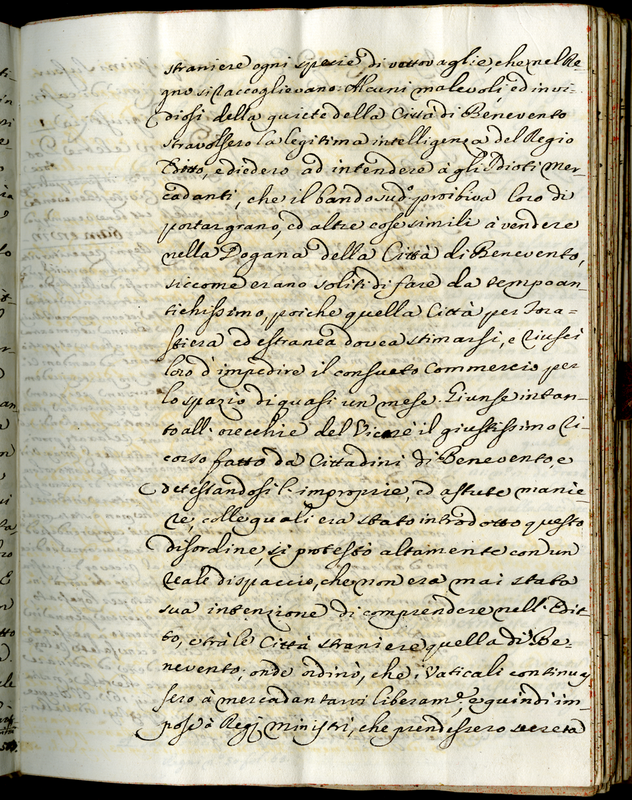 straniere ogni specie di vettovaglie, che nel Re-
gno si raccoglievano. Alcuni malevoli, ed invi-
diosi della quiete della Città di Benevento
stravolsero la legitima intelligenza del Regio
Editto, e diedero ad intendere à gli Idioti mer-
cadanti, che il bando sud.º proibiva loro di
portar grano, ed altre cose simili à vendere
nella Dogana della Città di Benevento,
siccome erano soliti di fare da tempo an-
tichissimo, poiche quella Città per fora-
stiera ed estranea dovea stimarsi, e riuscì
loro d'impedire il consueto Commercio per
lo spazio di quasi un mese. Giunse intan-
to all'orecchie del Vicerè il giustissimo ri-
corso fatto da Cittadini di Benevento, e
detestandosi l'improprie, ed astute manie-
re, colle quali era stato introdotto questo
disordine, si protestò altamente con un
reale dispaccio, che non era mai stata
sua intenzione di comprendere nell'Edit-
to, e trà le Città straniere quella di Be-
nevento; onde ordinò, che i Vaticali continuas
sero à mercadantarvi liberam.e, e quindi im-
pose à Regj ministri, che prendessero secreta